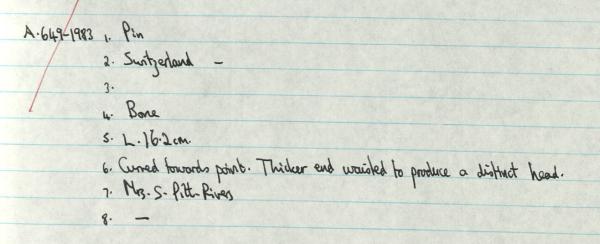 A.649-1983 1. Pin
2. Switzerland –
3.
4. Bone
5. L.16.2cm.
6. Curved towards point. Thicker end waisted to produce a distinct head.
7. Mrs. S. Pitt-Rivers
8. –